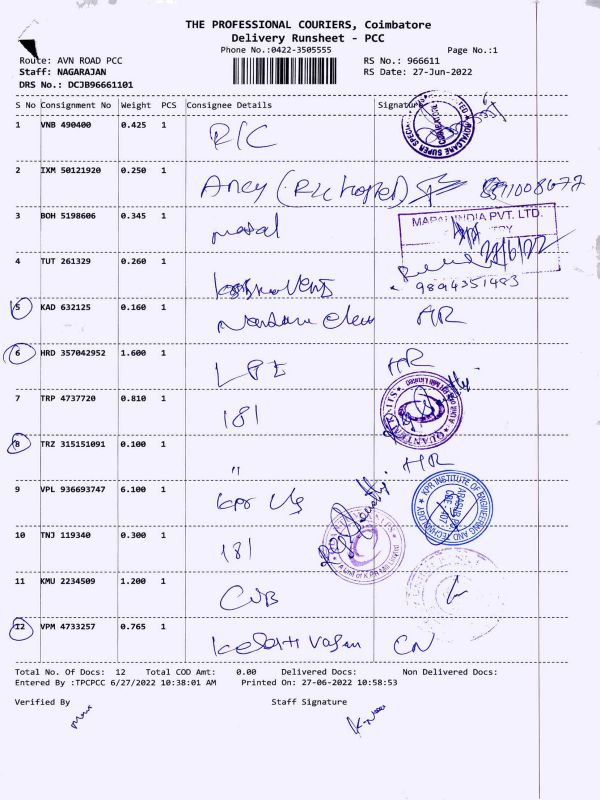 THE PROFESSIONAL COURIERS, Coimbatore
Delivery Runsheet - PCC
Phone No.:0422-3505555
Page No.:1
Route: AVN ROAD PCC
RS No.: 966611
Staff: NAGARAJAN
RS Date: 27-Jun-2022
DRS No.: DCJB96661101
S No Consignment No Weight PCS Consignee Details Signature
1 VNB 490400 0.425 1 R/C
2 IXM 50121920 0.250 1
3 BOH 5198606 0.345 1
INDIA PVT. LTD.
4 TUT 261329 0.260 1
9894351483
5 KAD 632125 0.160 1
6 HRD 357042952 1.600 1
7 TRP 4737720 0.810 1 181
8 TRZ 315151091 0.100 1 "
9 VPL 936693747 6.100 1 kpr
KPR INSTITUTE OF ENGINEERING AND TECHNOLOGY
10 TNJ 119340 0.300 1 181
11 KMU 2234509 1.200 1 CUB
12 VPM 4733257 0.765 1 CN
Total No. Of Docs: 12 Total COD Amt: 0.00 Delivered Docs: Non Delivered Docs:
Entered By :TPCPCC 6/27/2022 10:38:01 AM Printed On: 27-06-2022 10:58:53
Verified By Staff Signature